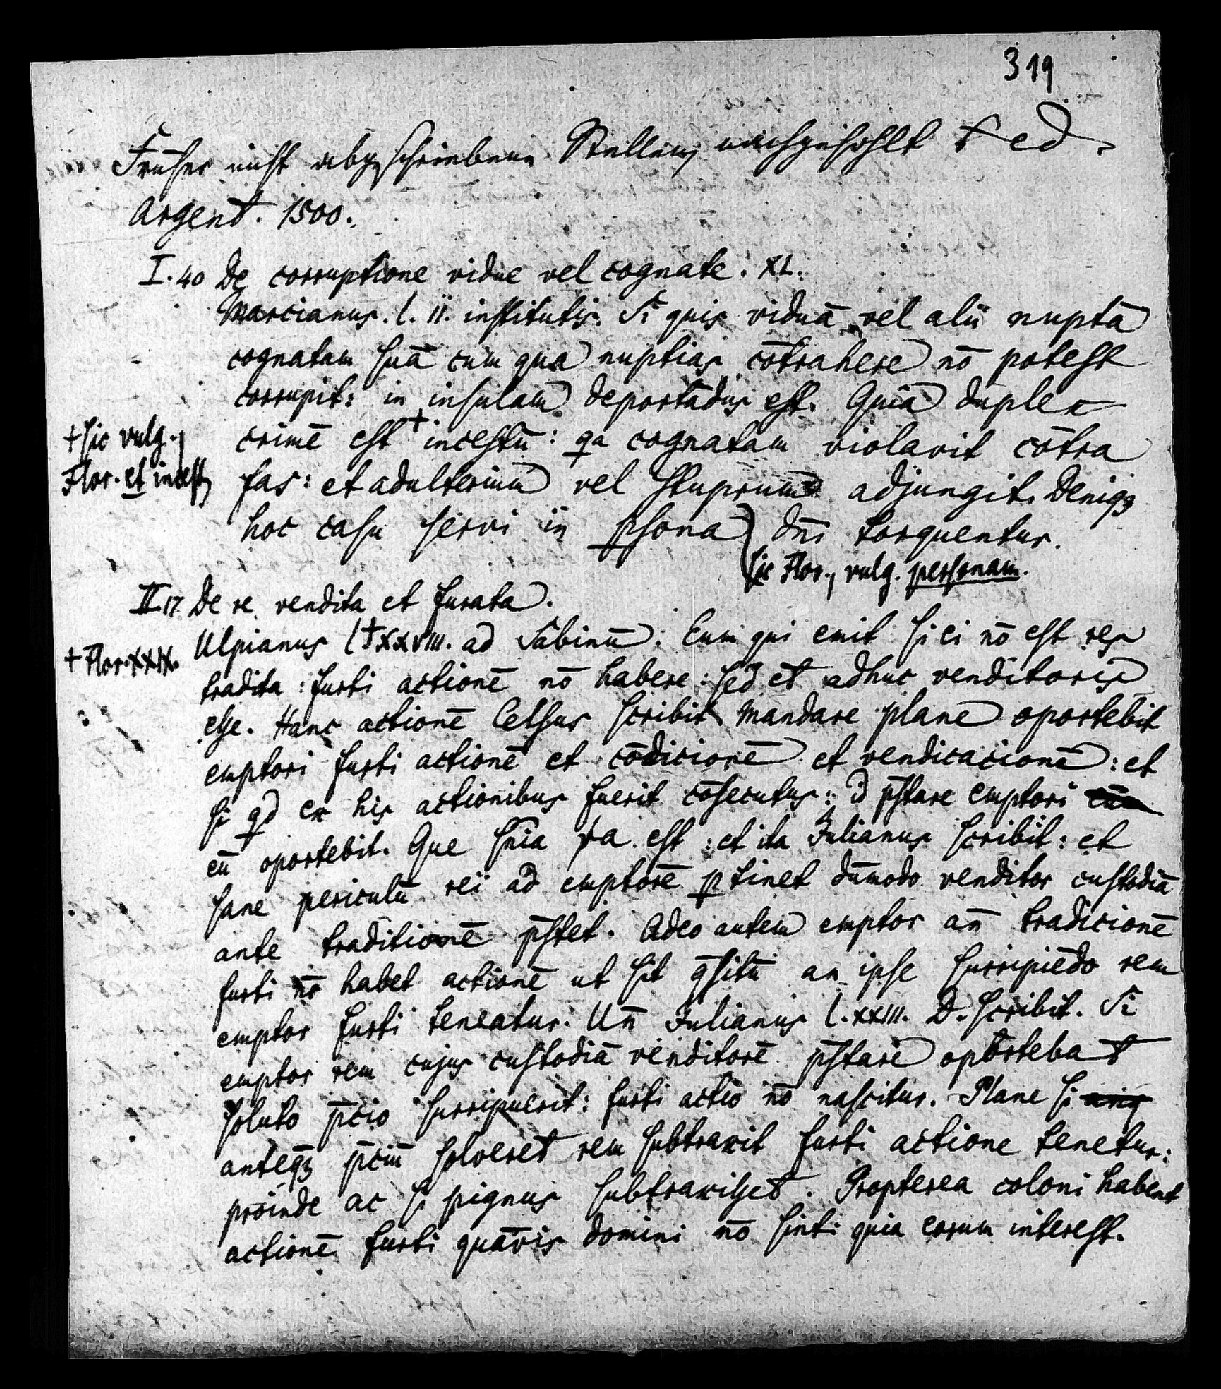 319
Früher nicht abgeschriebene Stellen, nachgeholt + ed.
Argent. 1500.
I. 40 De corruptione vidue vel cognate. XL.
Marcianus. l. ii. institutis. Si quis viduā vel alii nuptā
cognatam suā cum qua nuptias cōtrahere nō potest
corrupit: in insulam deportādus est. Quia duplex
crimē est + incestū: qa cognatam violavit cōtra
+ sic vulg.,
Flor. et incest
fas: et adulterium vel stuprum adjungit. Deniqz
hoc casu servi in psona dn̄i torquentur.
sic Flor., vulg. personam.
II 17 De re vendita et furata.
Ulpianus l + xxviii. ad Sabinū. Eum qui emit si ei nō est res
+ Flor. XXIX.
tradita: furti actionē nō habere: sed et adhuc venditoris
esse. Hanc actionē Celsus scribit mandare plane oportebit
emptori furti actionē et cōdicionē et vendicacionē: et
si qd ex his actionibus fuerit cōsecutus: id p̄stare emptori
eū oportebit. Que sn̄ia ... est: et ita Julianus scribit: et
sane periculū rei ad emptorē ptinet dūmodo venditor custodiā
ante traditionē p̄stet. Adeo autem emptor an̄ tradicionē
furti nō habet actionē ut sit q̄sitū an ipse surripiēdo rem
emptor furti teneatur. Un̄ Julianus l. xxiii. D. scribit. Si
emptor rem cujus custodiā venditorē p̄stare oportebat
soluto p̄cio surripuerit: furti actio nō nascitur. Plane si
anteqz p̄ciū solveret rem subtraxit furti actione tenetur:
proinde ac si pignus subtraxisset. Propterea coloni habent
actionē furti quāvis domini nō sint: quia eorum interest.